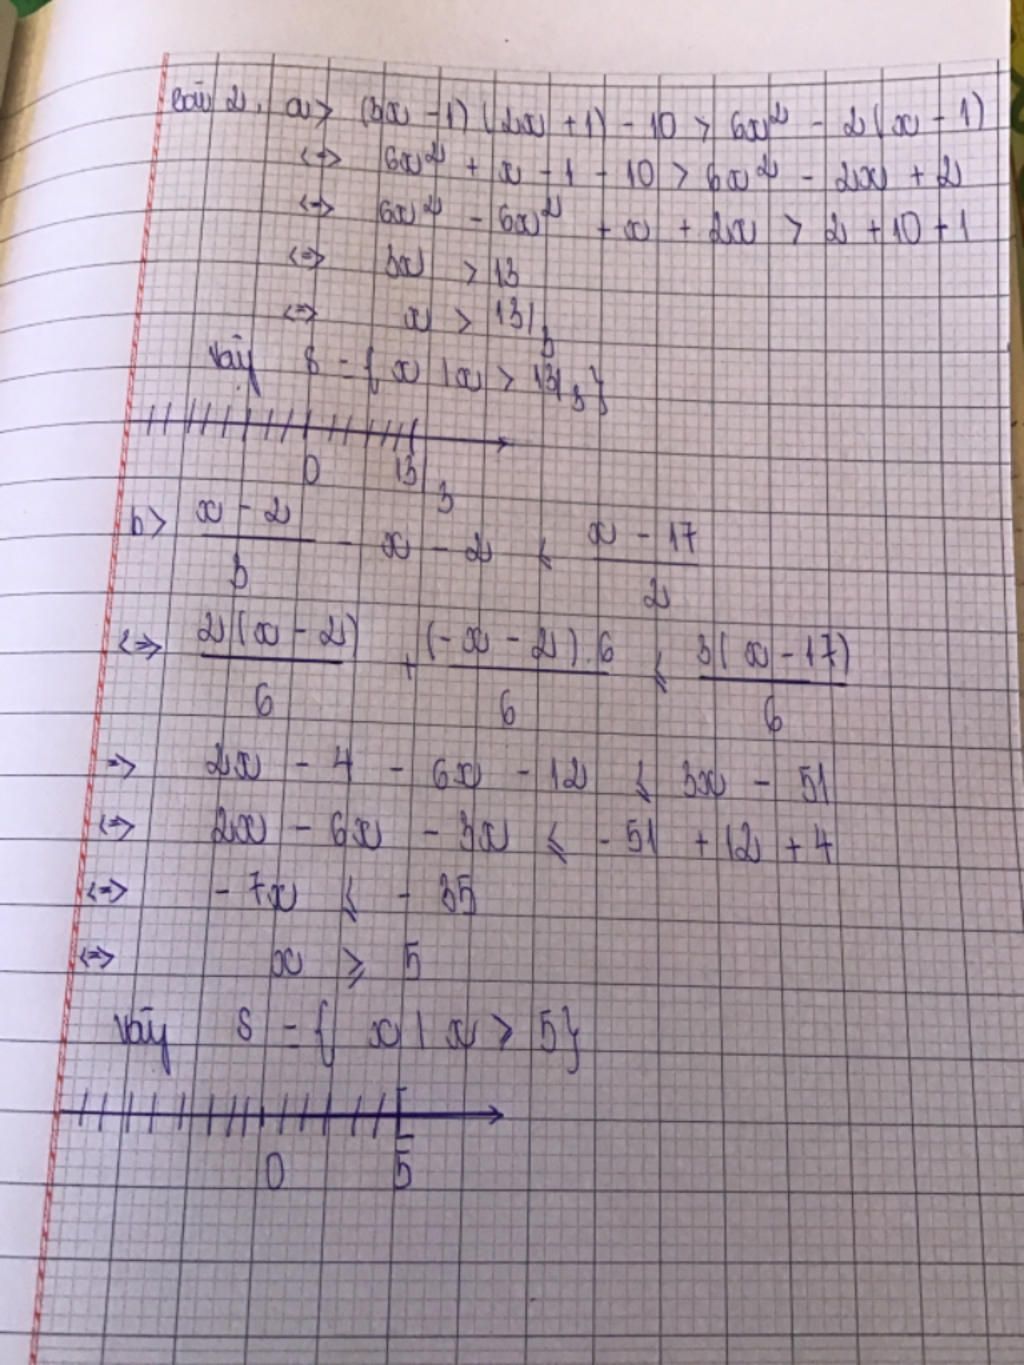 Bài 2. a> (3x - 1) (2x + 1) - 10 > 6x² - 2(x - 1)
<=> 6x² + x - 1 - 10 > 6x² - 2x + 2
<=> 6x² - 6x² + x + 2x > 2 + 10 + 1
<=> 3x > 13
<=> x > 13/3
Vậy S = { x | x > 13/3 }
0 13/3
b> (x - 2)/3 - x - 2 ≤ (x - 17)/2
<=> 2(x - 2)/6 + (-x - 2).6/6 ≤ 3(x - 17)/6
=> 2x - 4 - 6x - 12 ≤ 3x - 51
<=> 2x - 6x - 3x ≤ - 51 + 12 + 4
<=> - 7x ≤ - 35
<=> x ≥ 5
Vậy S = { x | x > 5 }
[
0 5